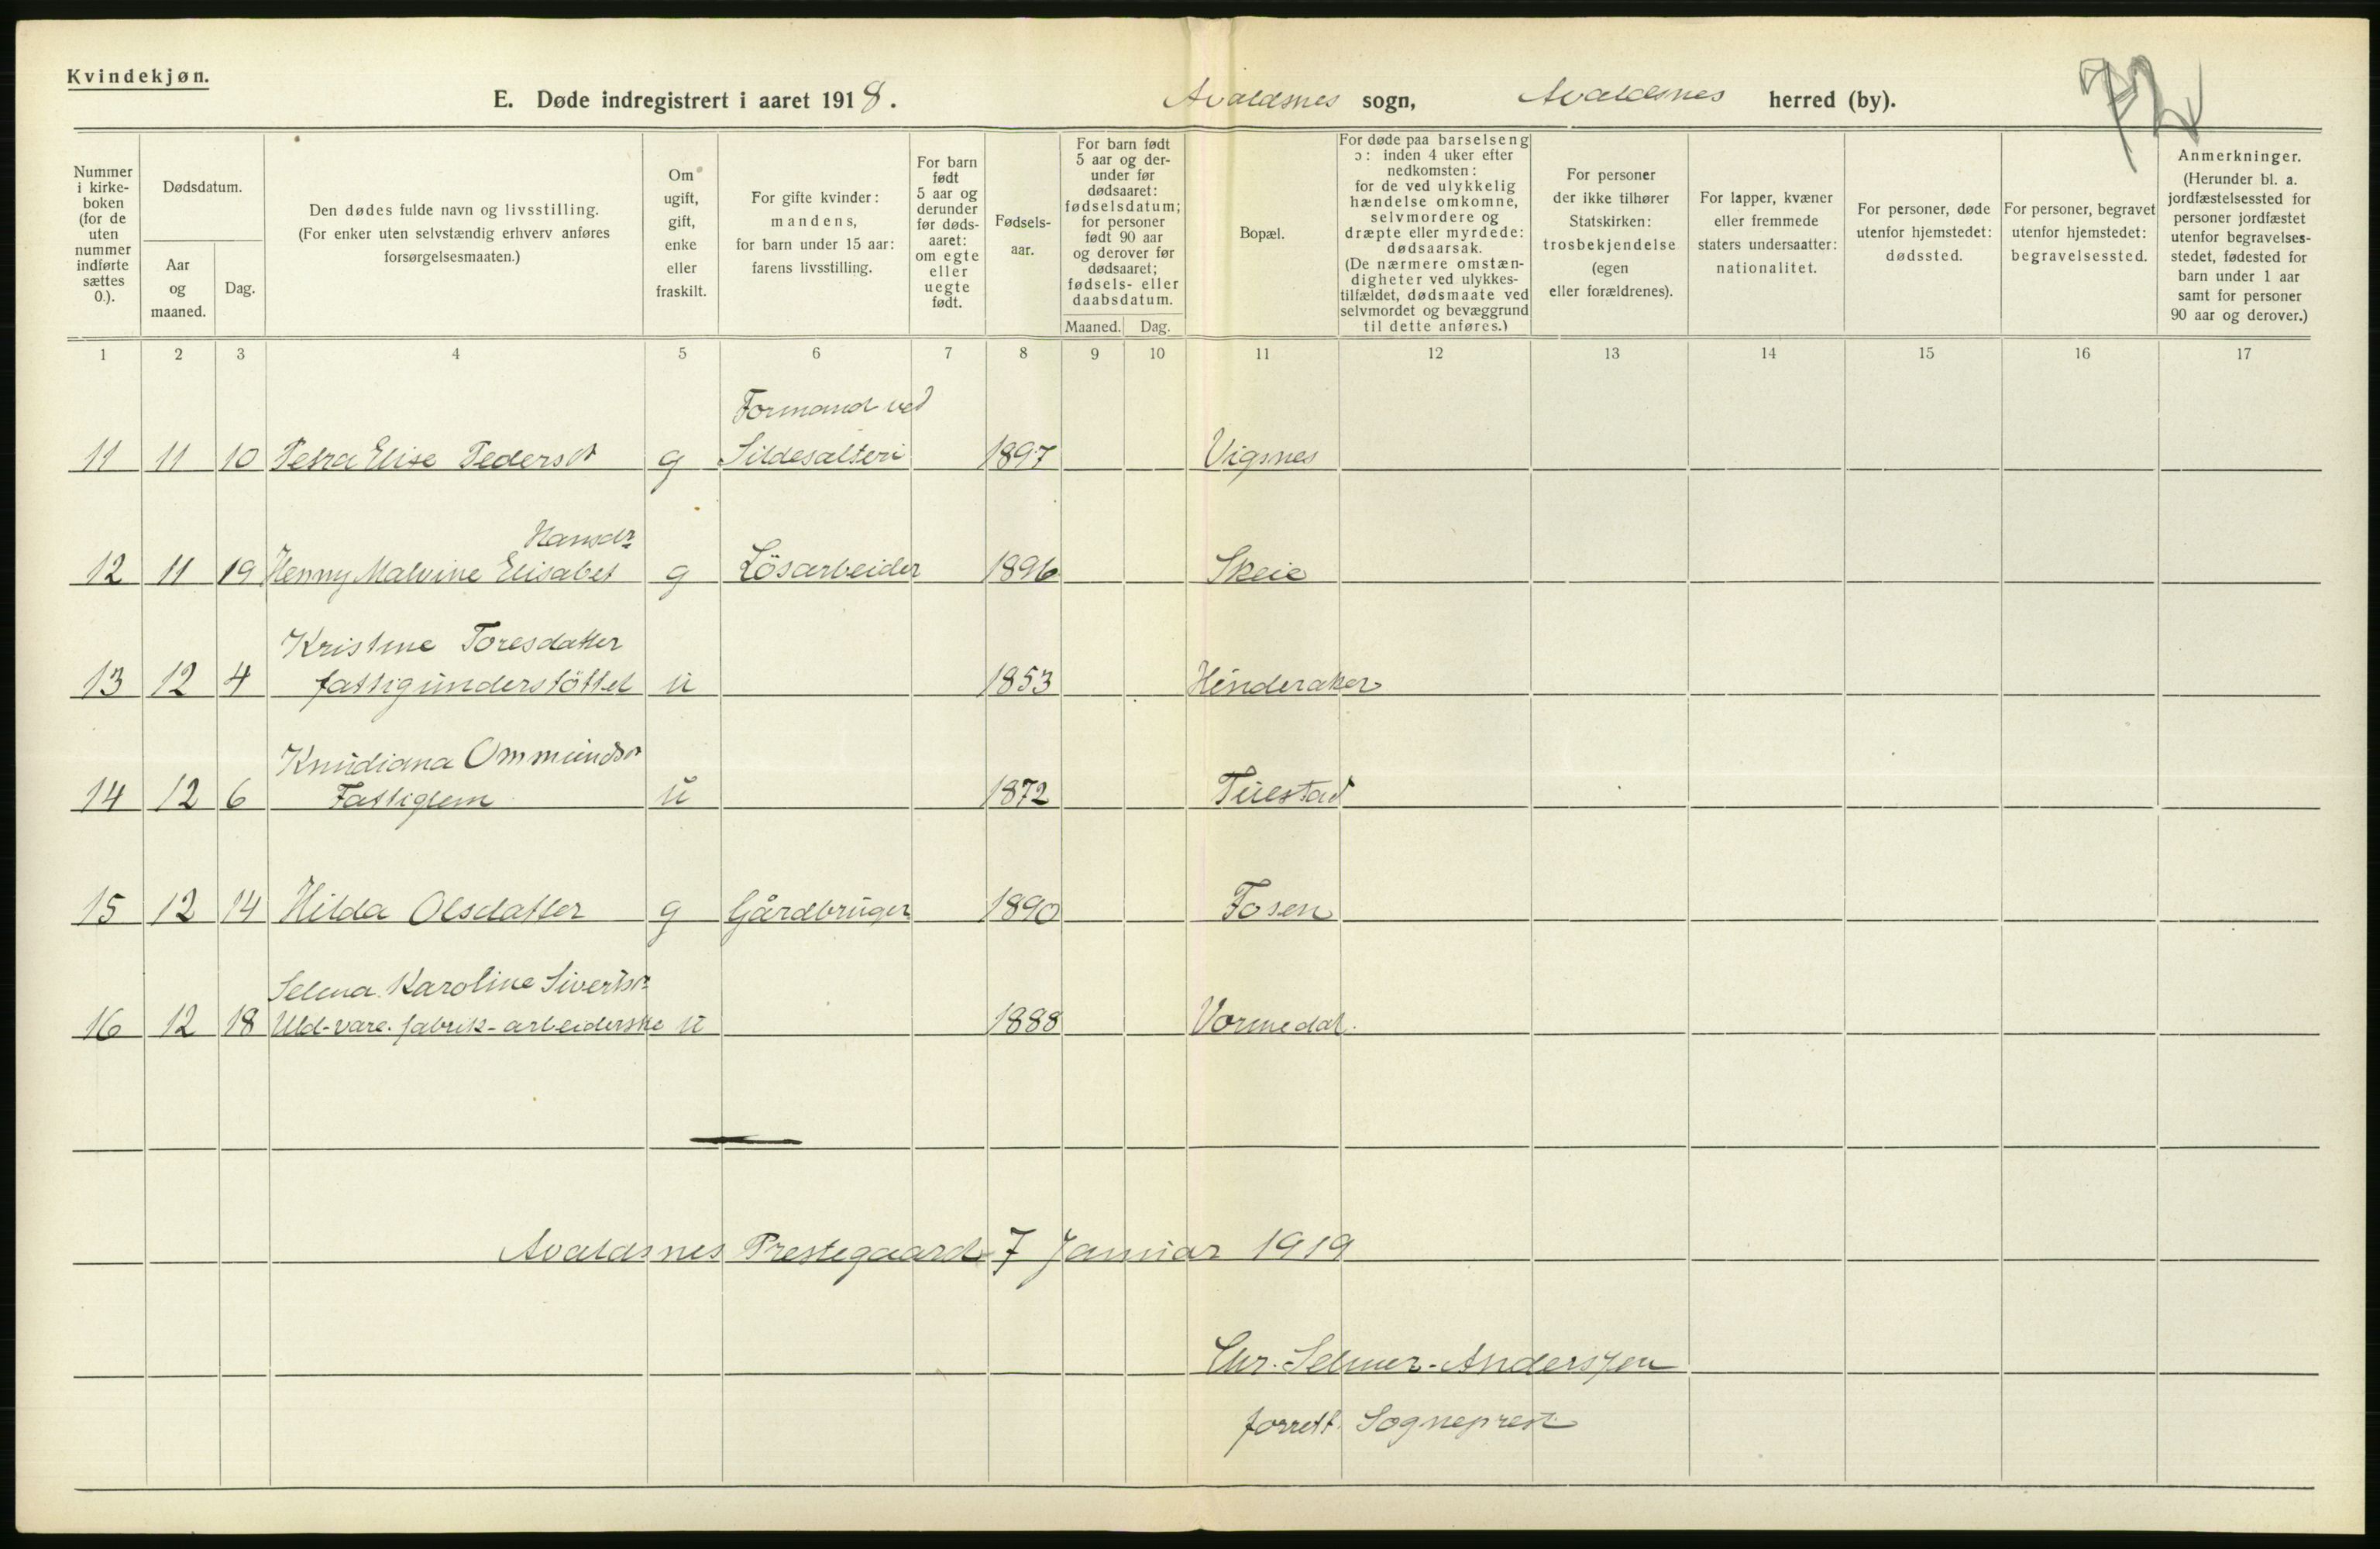 Kvindekjøn.
E. Døde indregistrert i aaret 1918. Avaldsnes sogn, Avaldsnes herred (by).
Nummer
i kirke-
boken
(for de
uten
nummer
indførte
sættes
0.).
Dødsdatum.
Aar
og
maaned.
Dag.
Den dødes fulde navn og livsstilling.
(For enker uten selvstændig erhverv anføres
forsørgelsesmaaten.)
Om
ugift,
gift,
enke
eller
fraskilt.
For gifte kvinder:
mandens,
for barn under 15 aar:
farens livsstilling.
For barn
født
5 aar og
derunder
før døds-
aaret:
om egte
eller
uegte
født.
Fødsels-
aar.
For barn født
5 aar og der-
under før
dødsaaret:
fødselsdatum;
for personer
født 90 aar
og derover før
dødsaaret;
fødsels- eller
daabsdatum.
Maaned. Dag.
Bopæl.
For døde paa barselseng
ɔ: inden 4 uker efter
nedkomsten:
for de ved ulykkelig
hændelse omkomne,
selvmordere og
dræpte eller myrdede:
dødsaarsak.
(De nærmere omstæn-
digheter ved ulykkes-
tilfældet, dødsmaate ved
selvmordet og bevæggrund
til dette anføres.)
For personer
der ikke tilhører
Statskirken:
trosbekjendelse
(egen
eller forældrenes).
For lapper, kvæner
eller fremmede
staters undersaatter:
nationalitet.
For personer, døde
utenfor hjemstedet:
dødssted.
For personer, begravet
utenfor hjemstedet:
begravelsessted.
Anmerkninger.
(Herunder bl. a.
jordfæstelsessted for
personer jordfæstet
utenfor begravelses-
stedet, fødested for
barn under 1 aar
samt for personer
90 aar og derover.)
1 2 3 4 5 6 7 8 9 10 11 12 13 14 15 16 17
Formand ved
11 11 10 Petra Elise Pedersdr g Sildesalteri 1897 Vigsnes
Hansdr
12 11 19 Henny Malvine Elisabet g Lösarbeider 1896 Skeie
Kristine Toresdatter
13 12 4 fattigunderstöttet u 1853 Hinderaker
Knudiana Ommundsdr
14 12 6 Fattiglem u 1872 Tuestad
15 12 14 Hilda Olsdatter g Gårdbruger 1890 Fosen
Selma Karoline Sivertsdr
16 12 18 Uld-vare-fabrik-arbeiderske u 1888 Vormedal.
Avaldsnes Prestegaard 7 Januar 1919
Chr. Selmer-Anderssen
forrett. Sogneprest